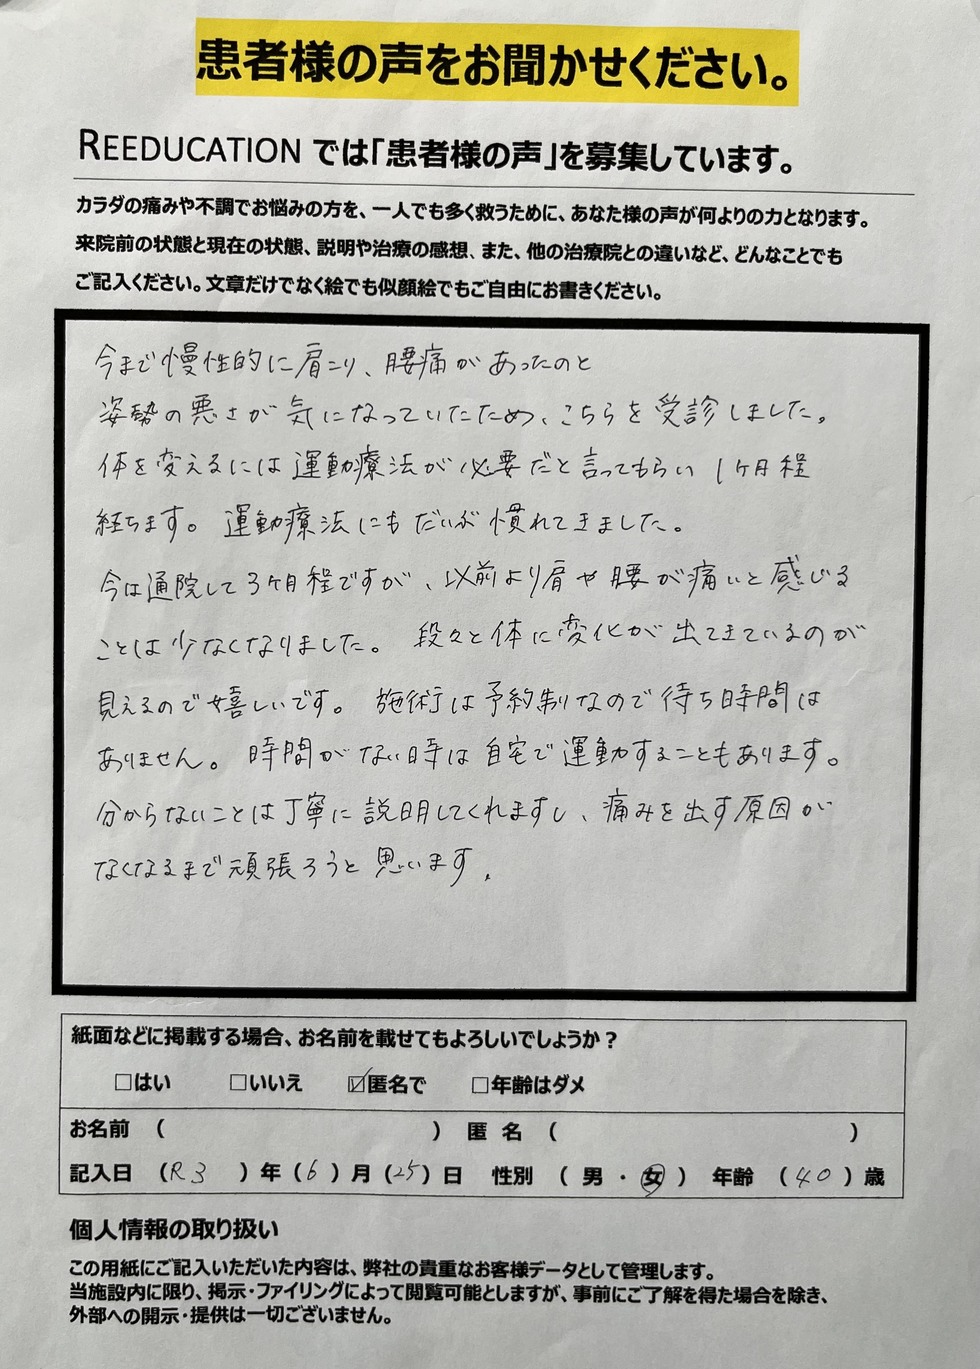 患者様の声をお聞かせください。
REEDUCATION では「患者様の声」を募集しています。
カラダの痛みや不調でお悩みの方を、一人でも多く救うために、あなた様の声が何よりの力となります。
来院前の状態と現在の状態、説明や治療の感想、また、他の治療院との違いなど、どんなことでも
ご記入ください。文章だけでなく絵でも似顔絵でもご自由にお書きください。
今まで慢性的に肩こり、腰痛があったのと
姿勢の悪さが気になっていたため、こちらを受診しました。
体を変えるには運動療法が必要だと言ってもらい1ヶ月程
経ちます。運動療法にもだいぶ慣れてきました。
今は通院して3ヶ月程ですが、以前より肩や腰が痛いと感じる
ことは少なくなりました。段々と体に変化が出てきているのが
見えるので嬉しいです。施術は予約制なので待ち時間は
ありません。時間がない時は自宅で運動することもあります。
分からないことは丁寧に説明してくれますし、痛みを出す原因が
なくなるまで頑張ろうと思います。
紙面などに掲載する場合、お名前を載せてもよろしいでしょうか？
□はい □いいえ ☑匿名で □年齢はダメ
お名前 （ ） 匿 名 （ ）
記入日 （R3 ）年（6 ）月（25）日 性別 （ 男 ・ 女 ） 年齢 （ 40 ）歳
個人情報の取り扱い
この用紙にご記入いただいた内容は、弊社の貴重なお客様データとして管理します。
当施設内に限り、掲示・ファイリングによって閲覧可能としますが、事前にご了解を得た場合を除き、
外部への開示・提供は一切ございません。